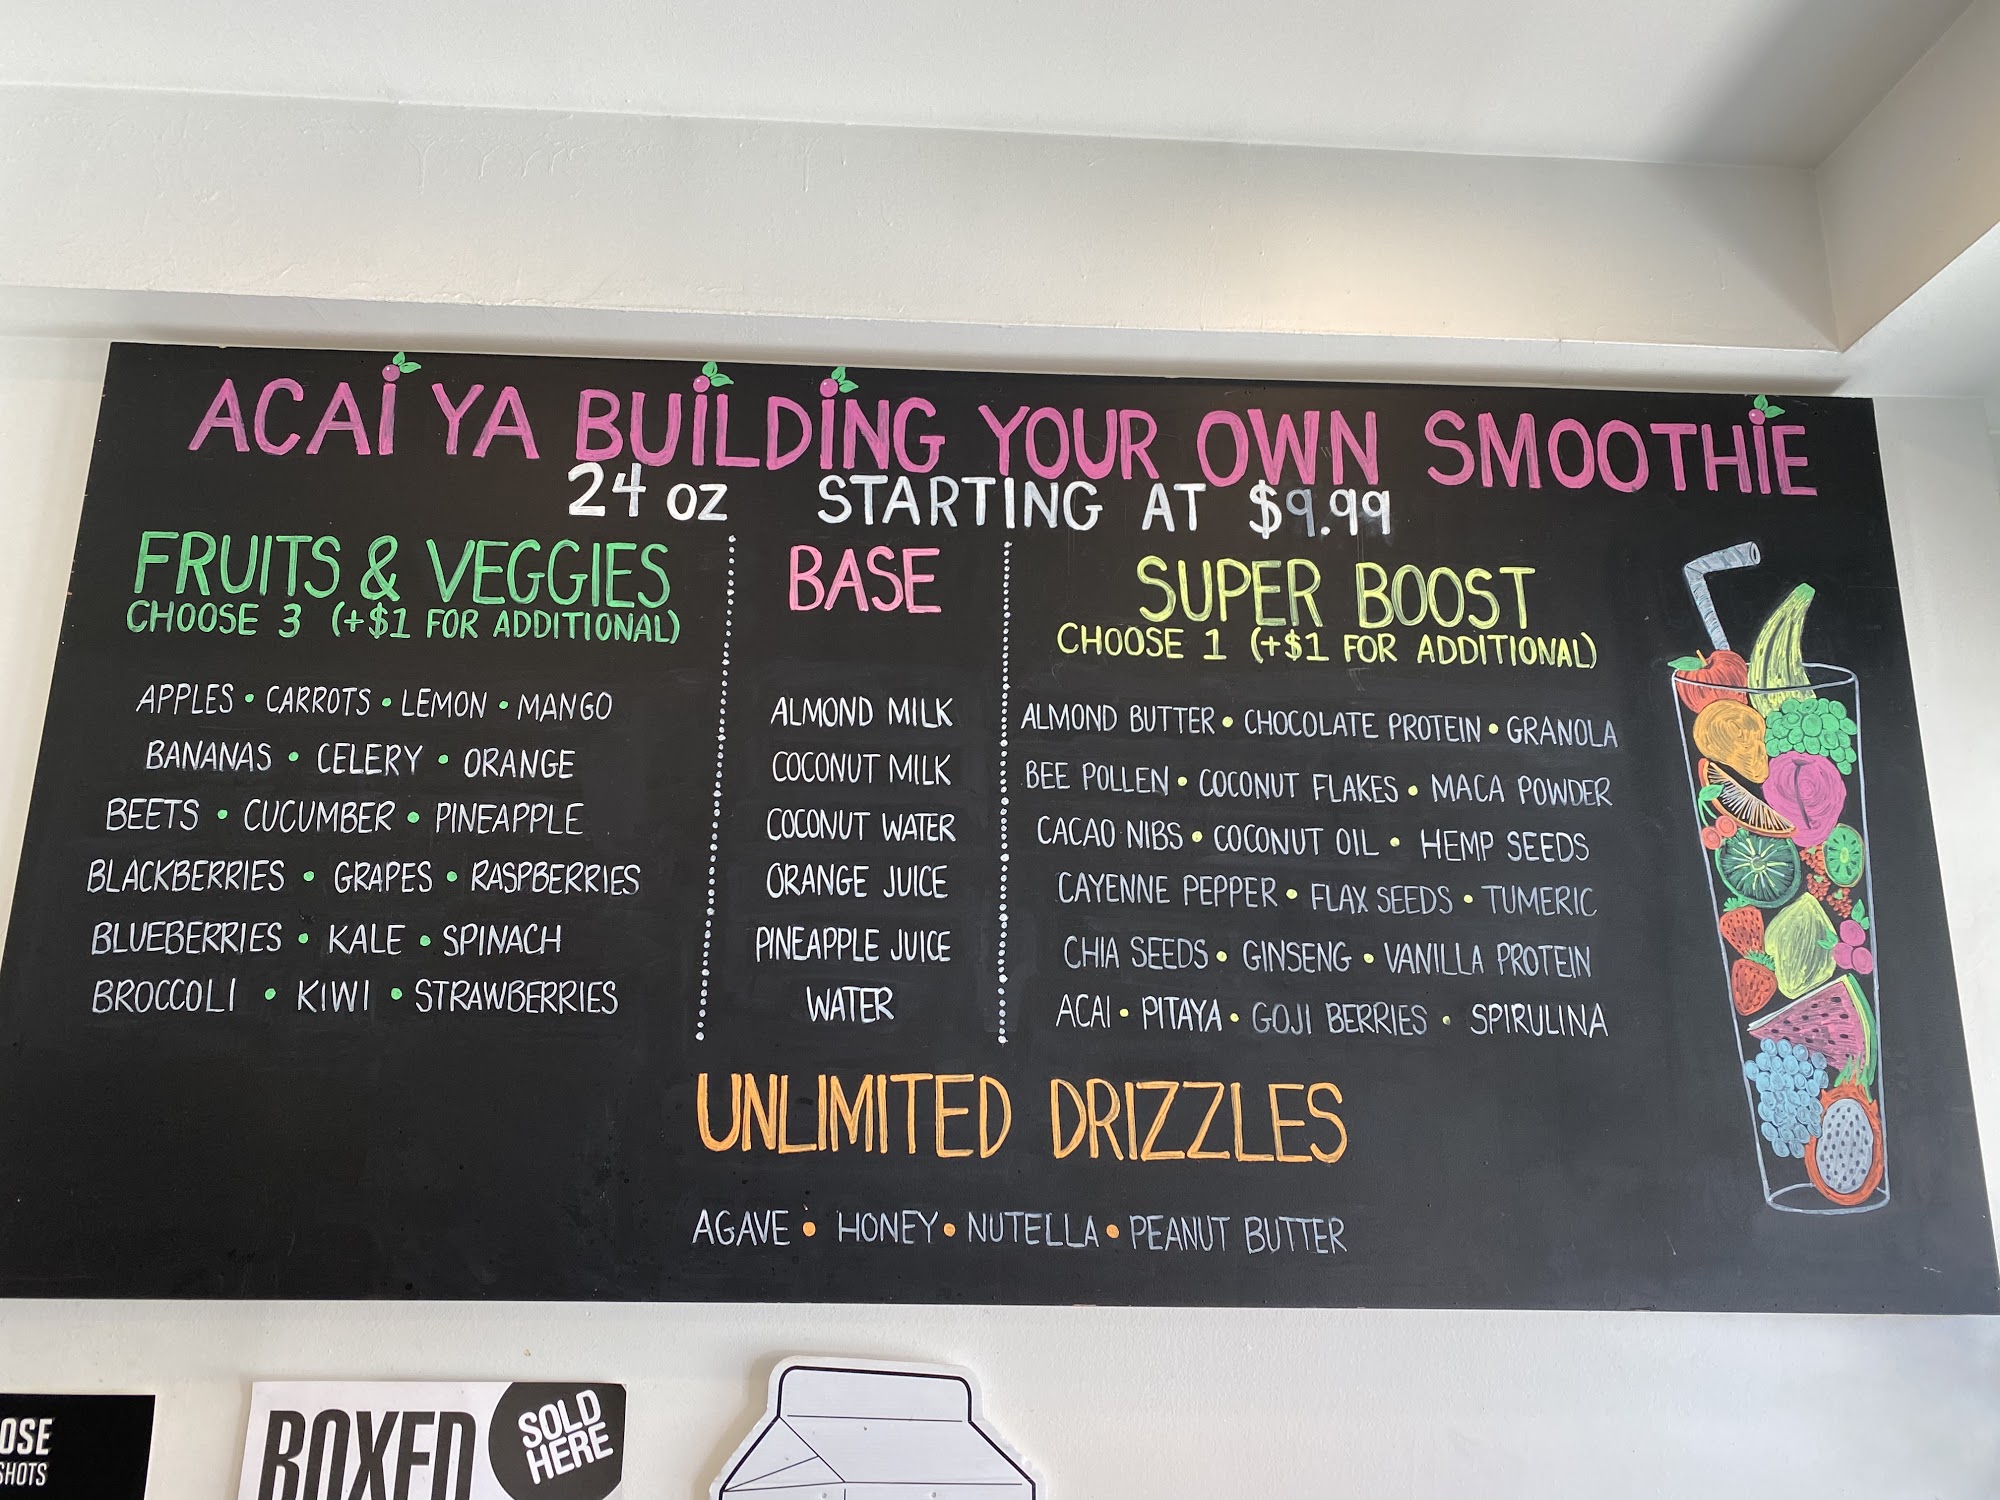 ACAI YA BUILDING YOUR OWN SMOOTHIE
24 OZ STARTING AT $9.99
FRUITS & VEGGIES
CHOOSE 3 (+$1 FOR ADDITIONAL)
APPLES • CARROTS • LEMON • MANGO
BANANAS • CELERY • ORANGE
BEETS • CUCUMBER • PINEAPPLE
BLACKBERRIES • GRAPES • RASPBERRIES
BLUEBERRIES • KALE • SPINACH
BROCCOLI • KIWI • STRAWBERRIES
BASE
ALMOND MILK
COCONUT MILK
COCONUT WATER
ORANGE JUICE
PINEAPPLE JUICE
WATER
SUPER BOOST
CHOOSE 1 (+$1 FOR ADDITIONAL)
ALMOND BUTTER • CHOCOLATE PROTEIN • GRANOLA
BEE POLLEN • COCONUT FLAKES • MACA POWDER
CACAO NIBS • COCONUT OIL • HEMP SEEDS
CAYENNE PEPPER • FLAX SEEDS • TUMERIC
CHIA SEEDS • GINSENG • VANILLA PROTEIN
ACAI • PITAYA • GOJI BERRIES • SPIRULINA
UNLIMITED DRIZZLES
AGAVE • HONEY • NUTELLA • PEANUT BUTTER
OSE
SHOTS
BOXED
SOLD
HERE